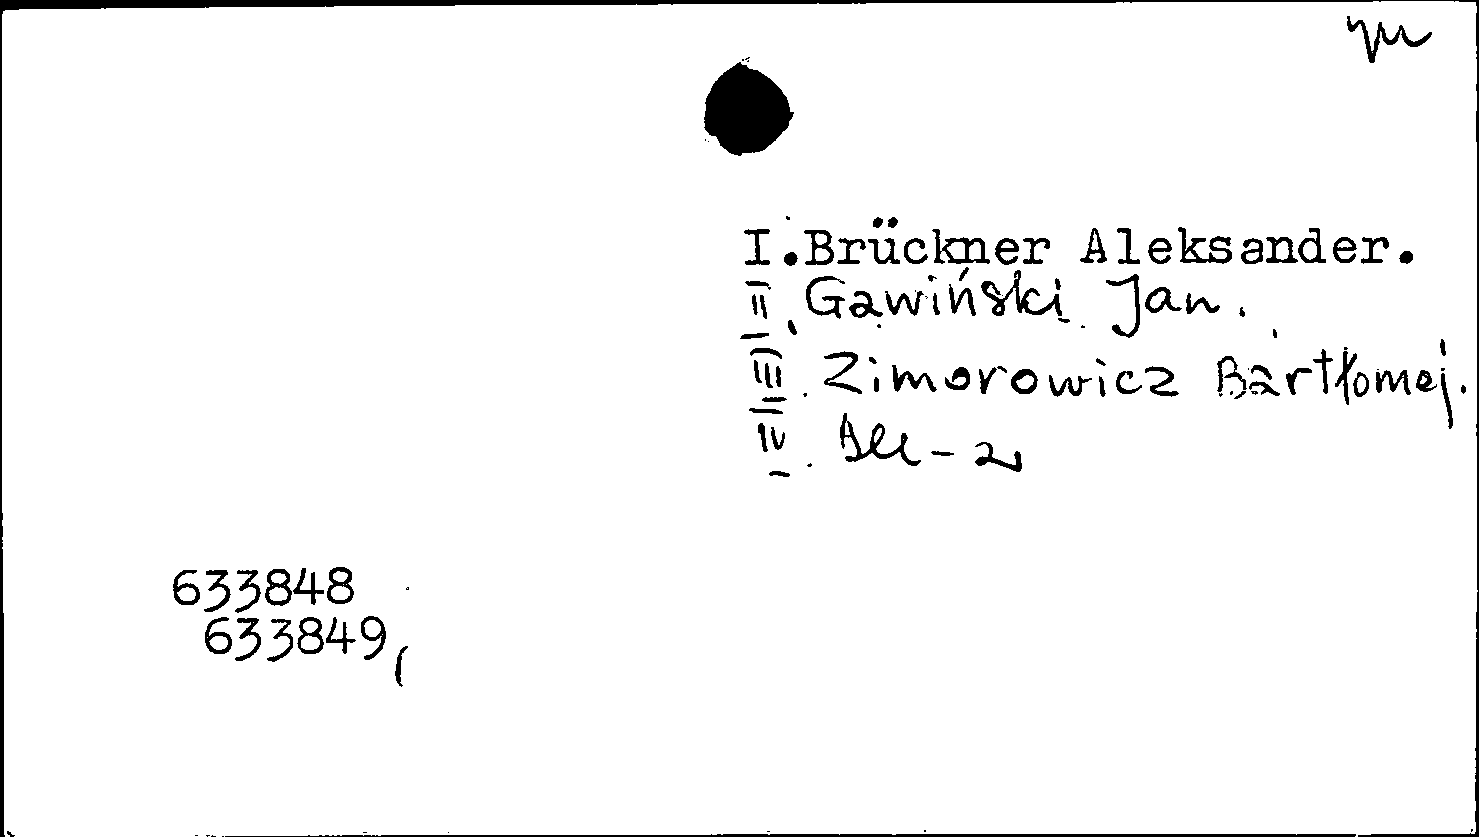 I.Brückner Aleksander.
II. Gawiński Jan.
III. Zimorowicz Bartłomej.
IV.
633848
633849